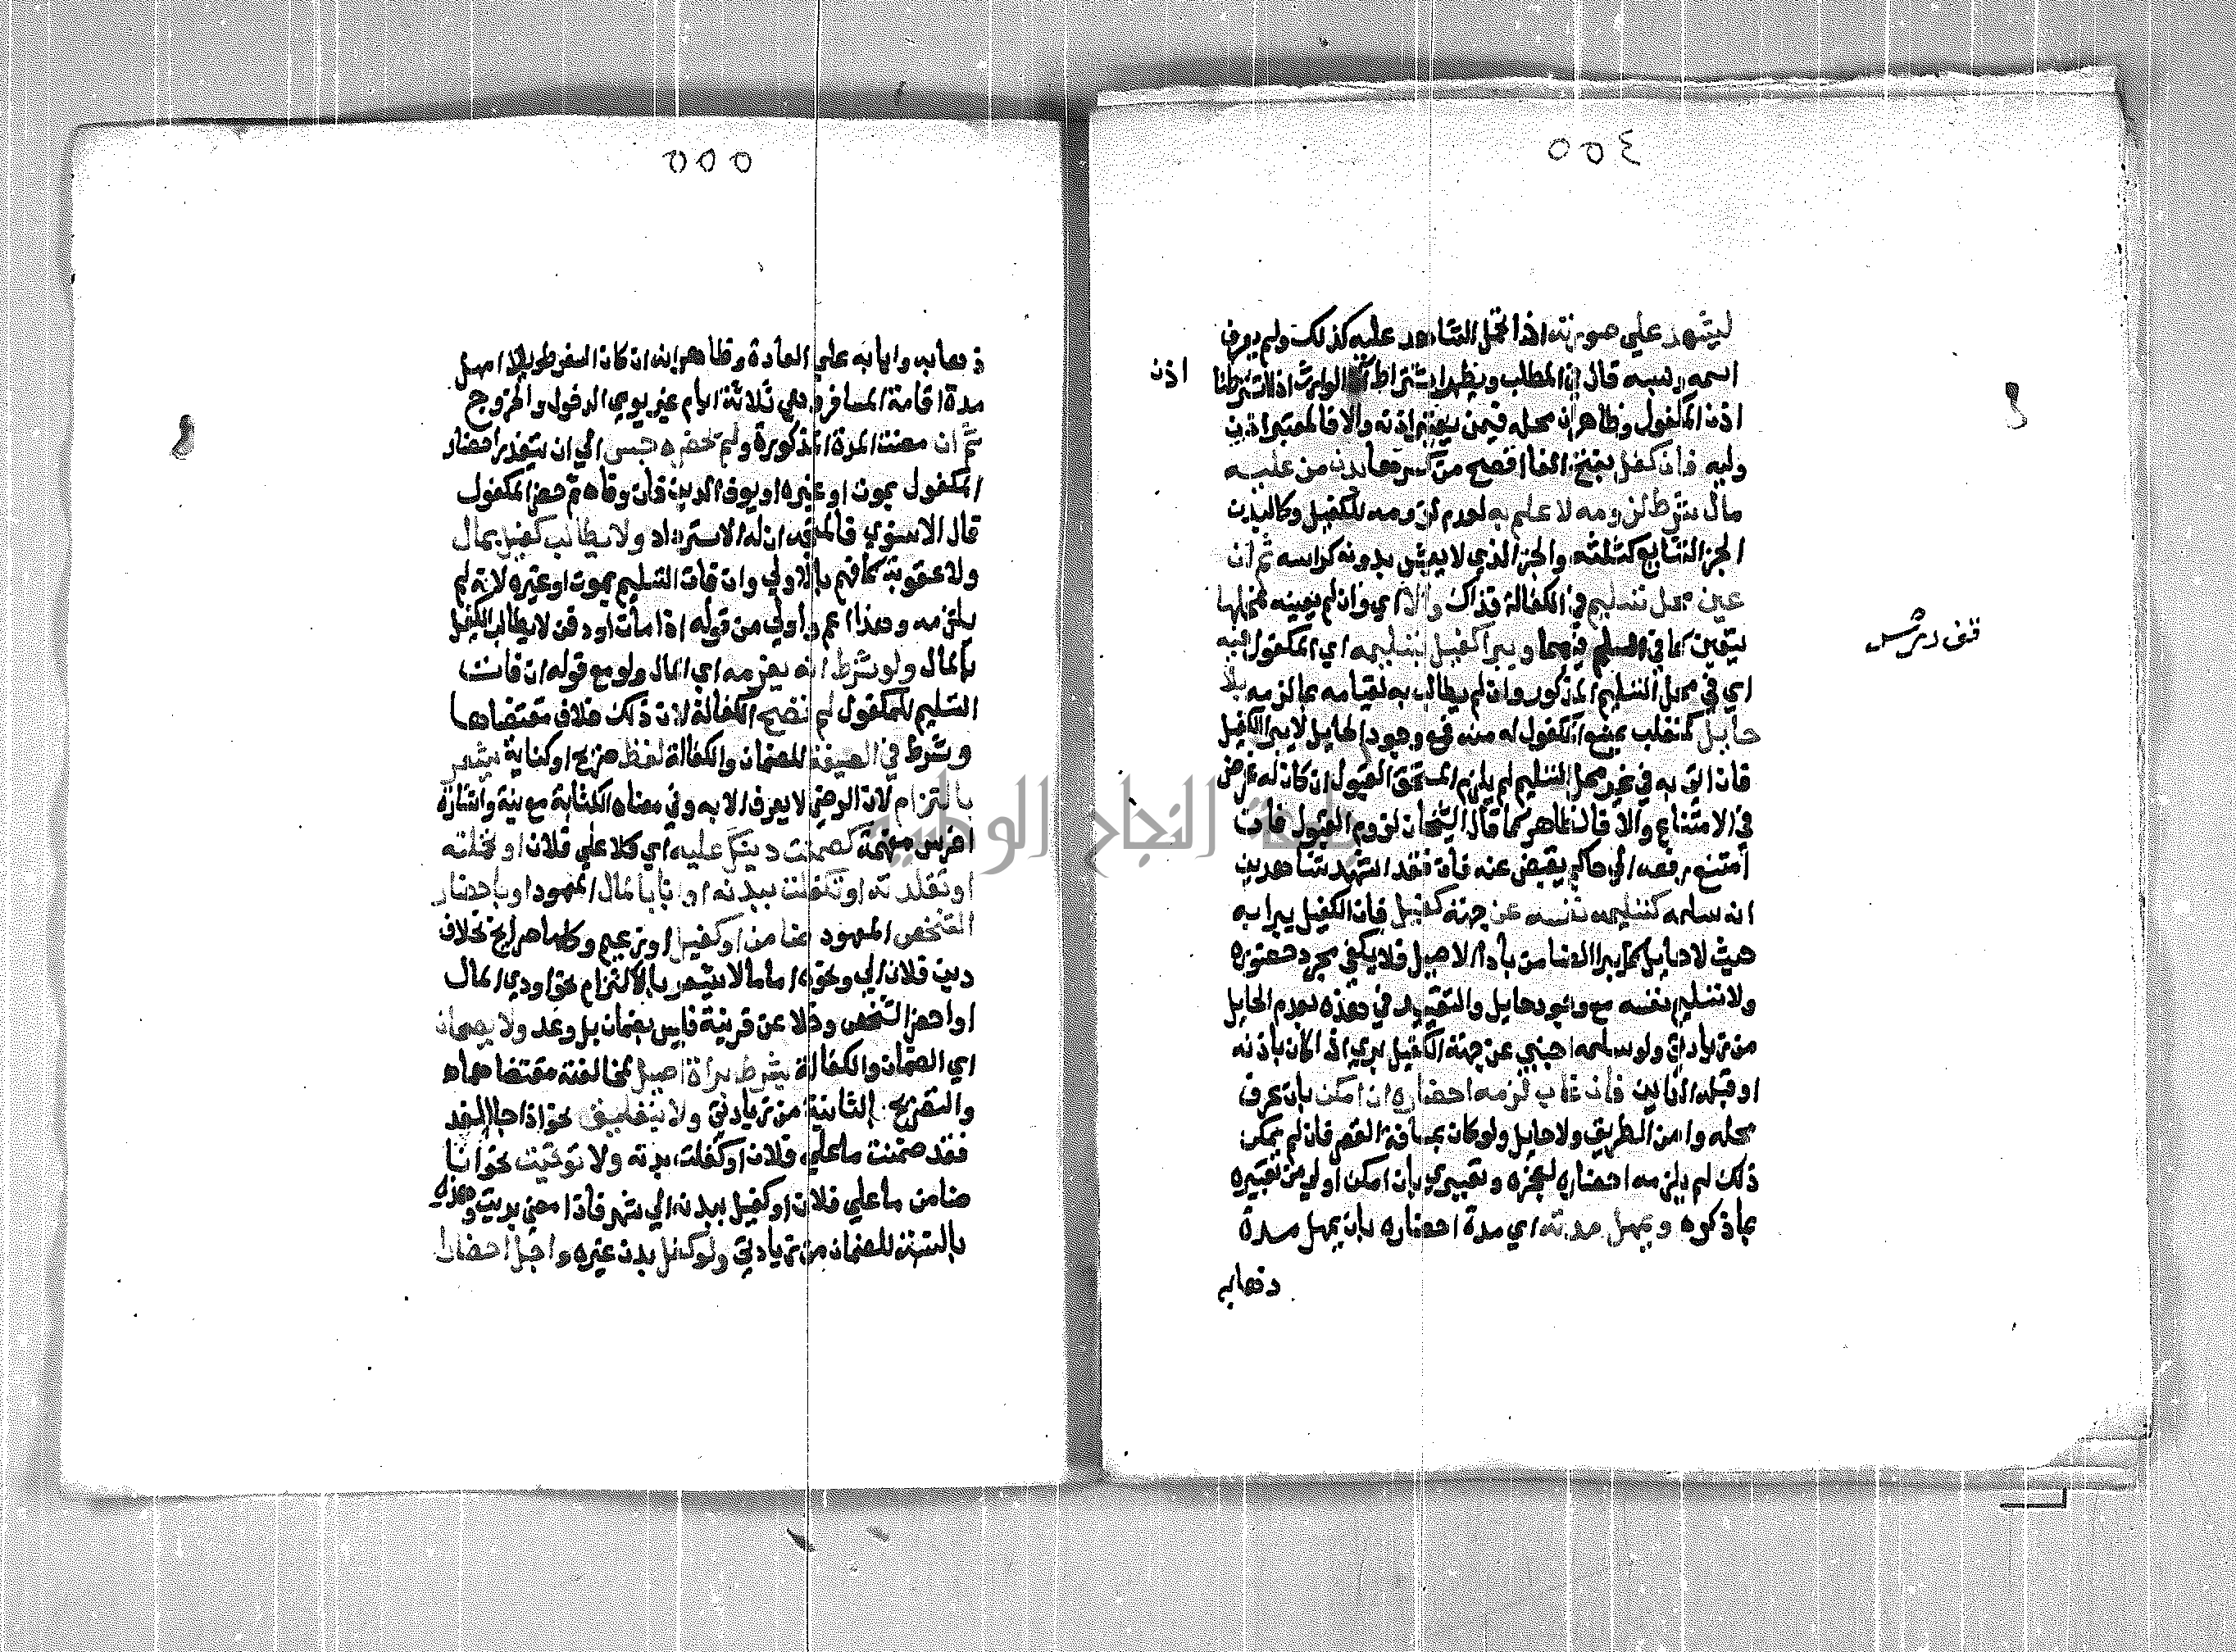 ٥٥٤
ليشهد على صورته اذا تحمل الشاهد عليه كذلك ولم يعرف
اسمه ونسبه قال في المطلب ويظهر اشتراط اذن الوارث اذا اشترطنا
اذن
اذن المكفول وظاهر ان محله فيمن يعتبر اذنه والا فالمعتبر اذن
وليه فان كفل بفتح الفا افصح من كسرها بدن من عليه
مال شرط لزومه لا علم به لعدم لزومه للكفيل وكالبدن
الجز الشايع كثلثه والجز الذي لا يعيش بدونه كراسه ثم ان
عين محل تسليم في الكفالة فذاك والا اي وان لم يعينه فمحلها
يتعين كما في السلم فيهما ويبرا كفيل بتسليمه اي المكفول فيه
قف درس
اي في محل التسليم المذكور وان لم يطالب به لقيامه بما لزمه بلا
حايل كمتغلب يمنع المكفول له منه فمع وجود الحايل لا يبرا الكفيل
فان اتى به في غير محل التسليم لم يلزم المستحق القبول ان كان له غرض
في الامتناع والا فالظاهر كما قال الشيخان لزوم القبول فان
امتنع رفعه الى حاكم يقبض عنه فان فقد اشهد شاهدين
انه سلمه كتسليمه نفسه عن جهة كفيل فان الكفيل يبرا به
حيث لا حايل كما يبرا الضامن بادا الاصيل فلا يكفي مجرد حضوره
ولا تسليم نفسه مع وجود حايل والتقييد في هذه بعدم الحايل
من زيادتي ولو سلمه اجنبي عن جهة الكفيل بري اذ الكان باذنه
او قبل الداين فان غاب لزمه احضاره ان امكن بان عرف
محله وامن الطريق ولا حايل ولو كان بمسافة القصر فان لم يمكن
ذلك لم يلزمه احضاره لعجزه وتعبيري بان امكن اولى من تعبيره
بما ذكره ويمهل مدته اي مدة احضاره بان يمهل مدة
ذهابه
٥٥٥
ذهابه وايابه على العادة وظاهر انه ان كان السفر طويلا امهل
مدة اقامة المسافر وهي ثلاثة ايام غير يومي الدخول والخروج
ثم ان مضت المدة المذكورة ولم يحضره حبس الى ان يتعذر احضار
المكفول بموت او غيره او يوفي الدين فان وفاه ثم حضر المكفول
قال الاسنوي فالمتجه ان له الاسترداد ولا يطالب كفيل بمال
ولا عقوبة كما فهم بالاولى وان فات التسليم بموت او غيره لانه لم
يلتزمه وهذا اعم واولى من قوله اذا مات ودفن لا يطالب الكفيل
بالمال ولو شرط انه يغرمه اي المال ولو مع قوله ان فات
التسليم للمكفول لم تصح الكفالة لان ذلك خلاف مقتضاها
وشرط في الصيغة للضمان والكفالة لفظ صريح او كناية يشعر
بالتزام لان الرضى لا يعرف الا به وفي معناه الكتابة مع نية واشارة
اخرس مفهمة كضمنت دينك عليه اي كلا على فلان او تحملته
او تقلدته او تكفلت ببدنه او انا بالمال المعهود او باحضار
الشخص المعهود ضامن او كفيل او زعيم وكلها صرايح بخلاف
دين فلان الي ونحوه اما ما لا يشعر بالالتزام نحو اودي المال
او احضر الشخص وخلا عن قرينة فليس بضمان بل وعد ولا يصحان
اي الضمان والكفالة بشرط براة اصيل لمخالفته مقتضاهما
والتصريح بالثانية من زيادتي ولا بتعليق نحو اذا جا الغد
فقد ضمنت ما على فلان او كفلت بدنه ولا توقيت نحو انا
ضامن ما على فلان او كفيل ببدنه الى شهر فاذا مضى بريت وهذه
بالنسبة للضمان من زيادتي ولو كفل بدن غيره واجل احضارا